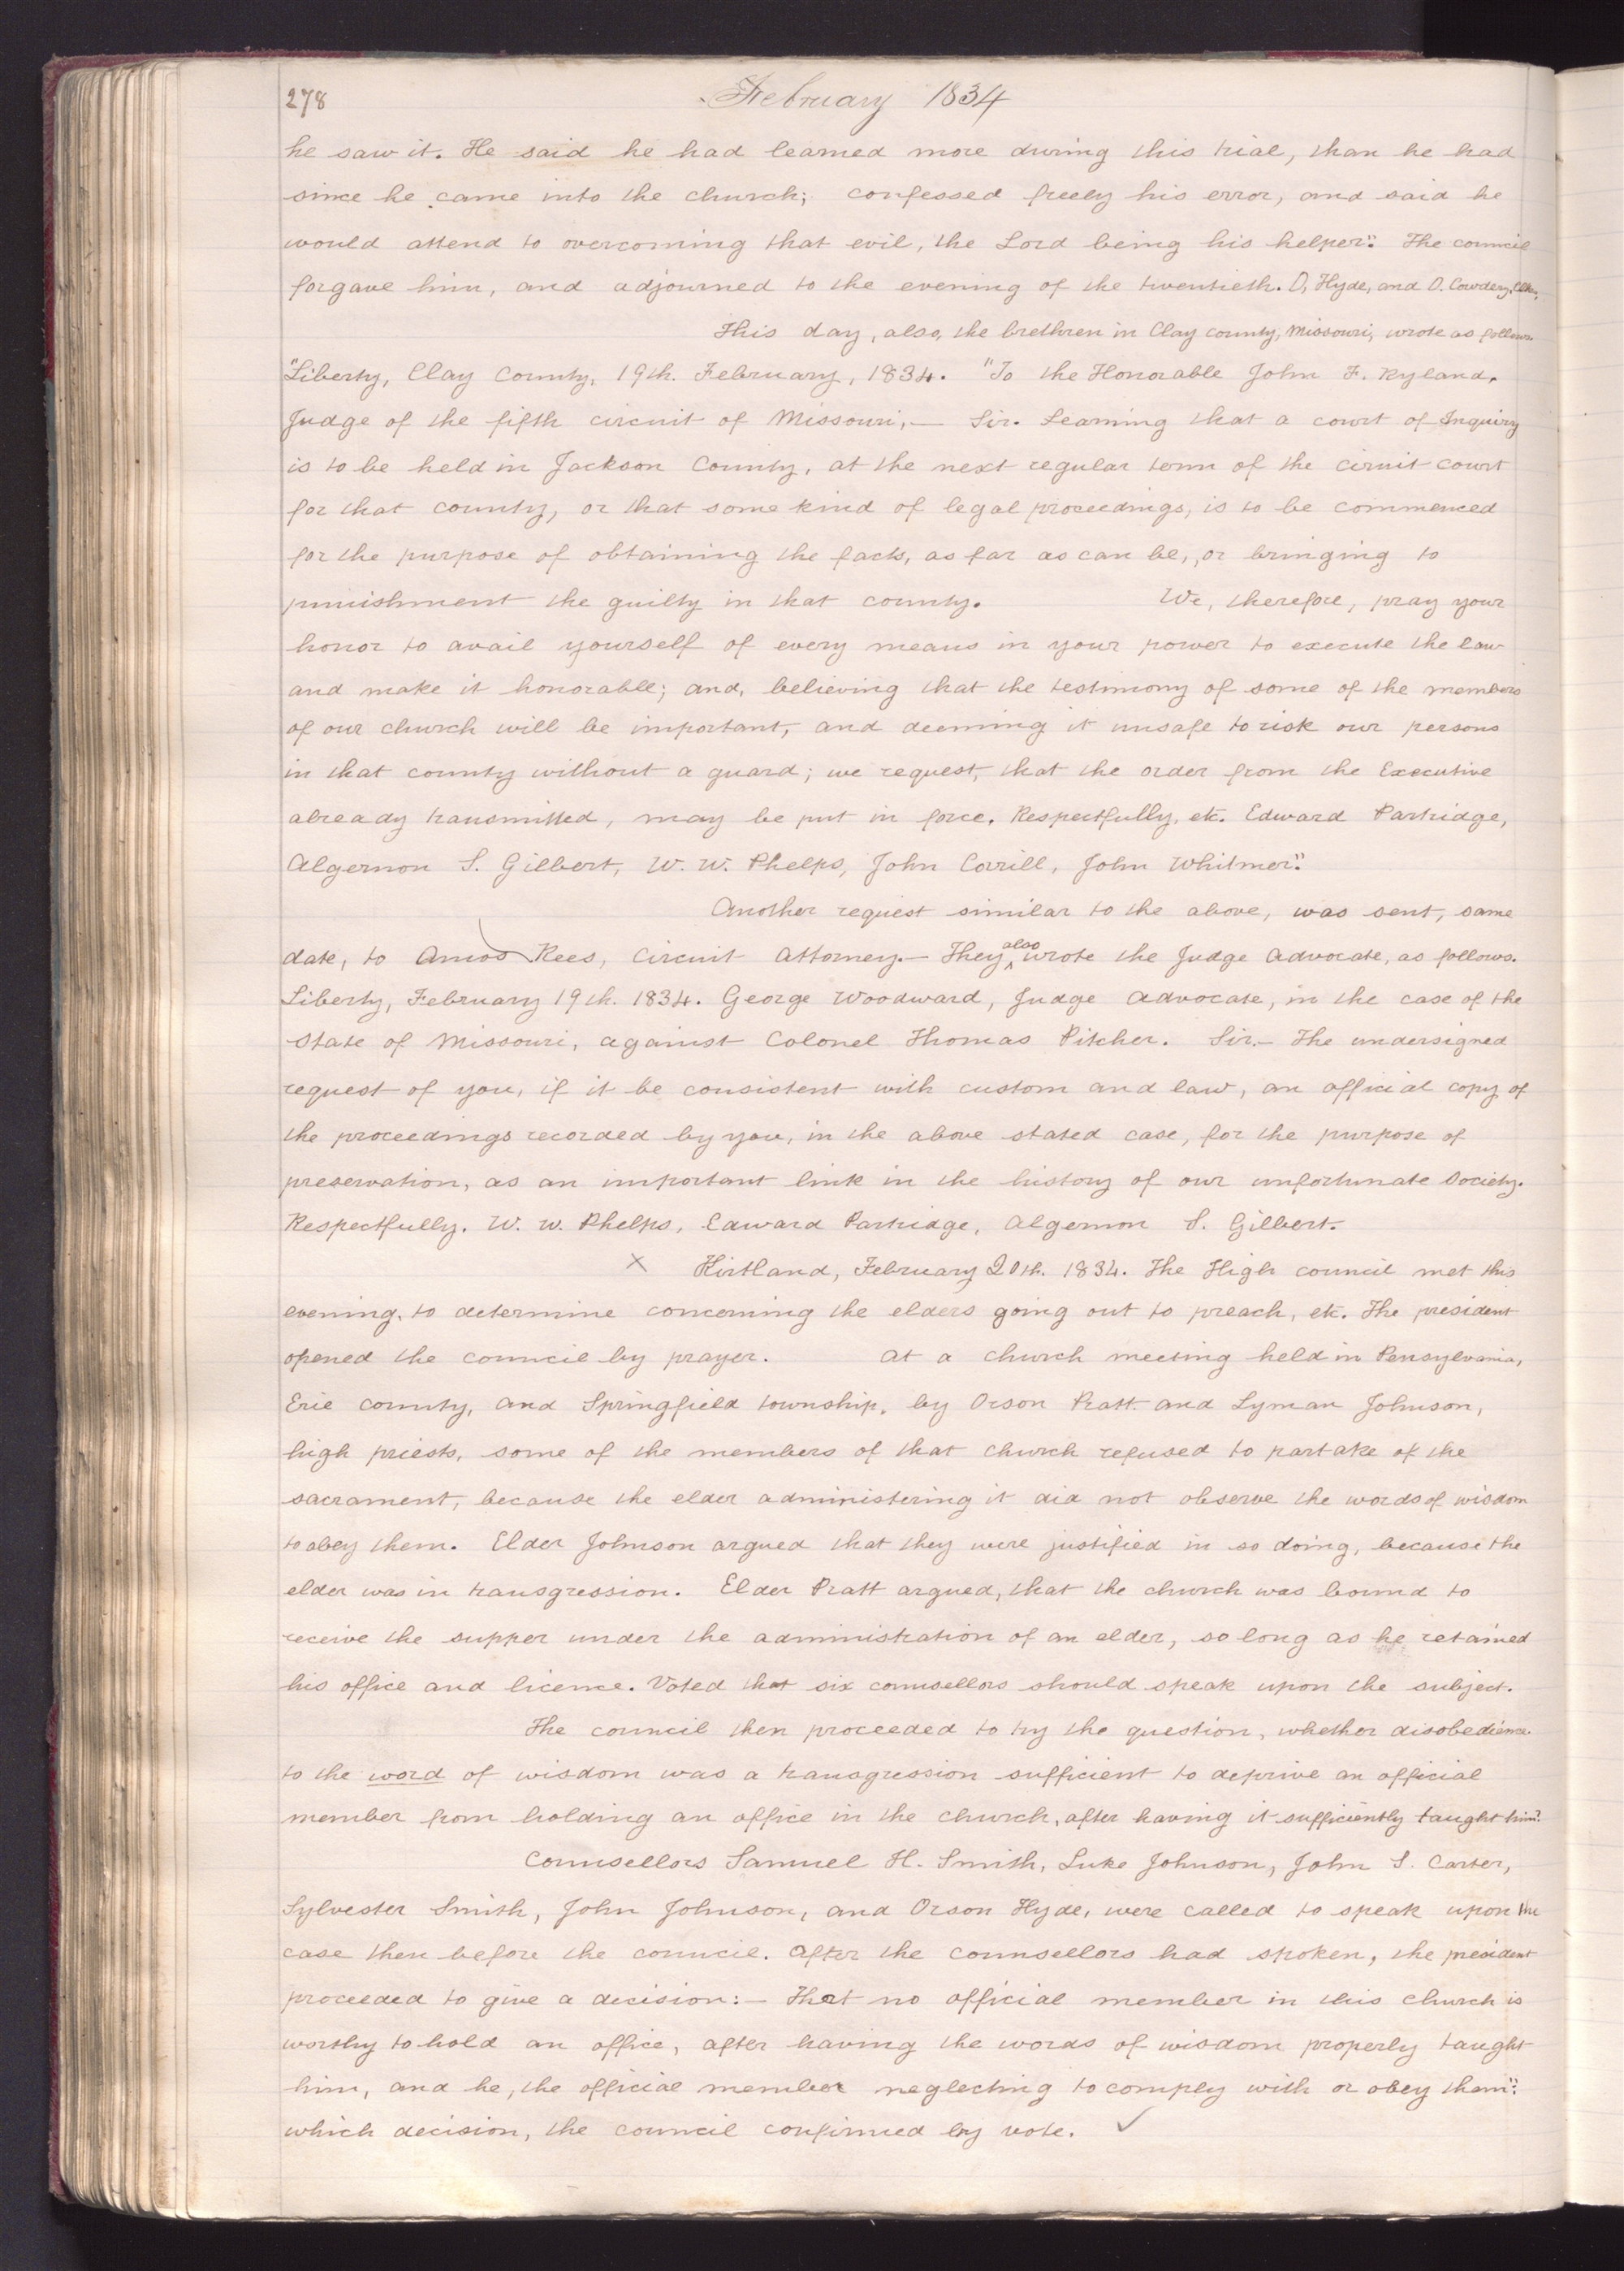 278
February 1834
he saw it. He said he had learned more during this trial, than he had
since he came into the church; confessed freely his error, and said he
would attend to overcoming that evil, the Lord being his helper". The council
forgave him, and adjourned to the evening of the twentieth. O, Hyde, and O. Cowdery, Clks,
This day, also, the brethren in Clay county, Missouri, wrote as follows
"Liberty, Clay County, 19th. February, 1834. "To the Honorable John F. Ryland,
Judge of the fifth circuit of Missouri,— Sir. Learning that a court of Inquiry
is to be held in Jackson County, at the next regular term of the ciruit court
for that county, or that some kind of legal proceedings, is to be commenced
for the purpose of obtaining the facts, as far as can be, or bringing to
punishment the guilty in that county. We, therefore, pray your
honor to avail yourself of every means in your power to execute the law
and make it honorable; and, believing that the testimony of some of the members
of our church will be important, and deeming it unsafe to risk our persons
in that county without a guard; we request, that the order from the Executive
already transmitted, may be put in force. Respectfully, etc. Edward Partridge,
Algernon S. Gilbert, W. W. Phelps, John Corrill, John Whitmer".
Another request similar to the above, was sent, same
date, to Amos Rees, Circuit Attorney.— They also wrote the Judge Advocate, as follows.
Liberty, February 19th. 1834. George Woodward, Judge Advocate, in the case of the
State of Missouri, against Colonel Thomas Pitcher. Sir.— The undersigned
request of you, if it be consistent with custom and law, an official copy of
the proceedings recorded by you, in the above stated case, for the purpose of
preservation, as an important link in the history of our unfortunate Society.
Respectfully. W. W. Phelps, Edward Partridge, Algernon S. Gilbert.
X Kirtland, February 20th. 1834. The High council met this
evening, to determine concerning the elders going out to preach, etc. The president
opened the council by prayer. At a church meeting held in Pensylvania,
Erie county, and Springfield township, by Orson Pratt and Lyman Johnson,
high priests, some of the members of that church refused to partake of the
sacrament, because the elder administering it did not observe the words of wisdom
to obey them. Elder Johnson argued that they were justified in so doing, because the
elder was in transgression. Elder Pratt argued, that the church was bound to
receive the supper under the administration of an elder, so long as he retained
his office and licence. Voted that six counsellors should speak upon the subject.
The council then proceeded to try the question, whether disobedience
to the word of wisdom was a transgression sufficient to deprive an official
member from holding an office in the church, after having it sufficiently taught him?
Counsellors Samuel H. Smith, Luke Johnson, John S. Carter,
Sylvester Smith, John Johnson, and Orson Hyde, were called to speak upon the
case then before the council. After the counsellors had spoken, the president
proceeded to give a decision:— That no official member in this church is
worthy to hold an office, after having the words of wisdom properly taught
him, and he, the official member neglecting to comply with or obey them":
which decision, the council confirmed by vote. ✓